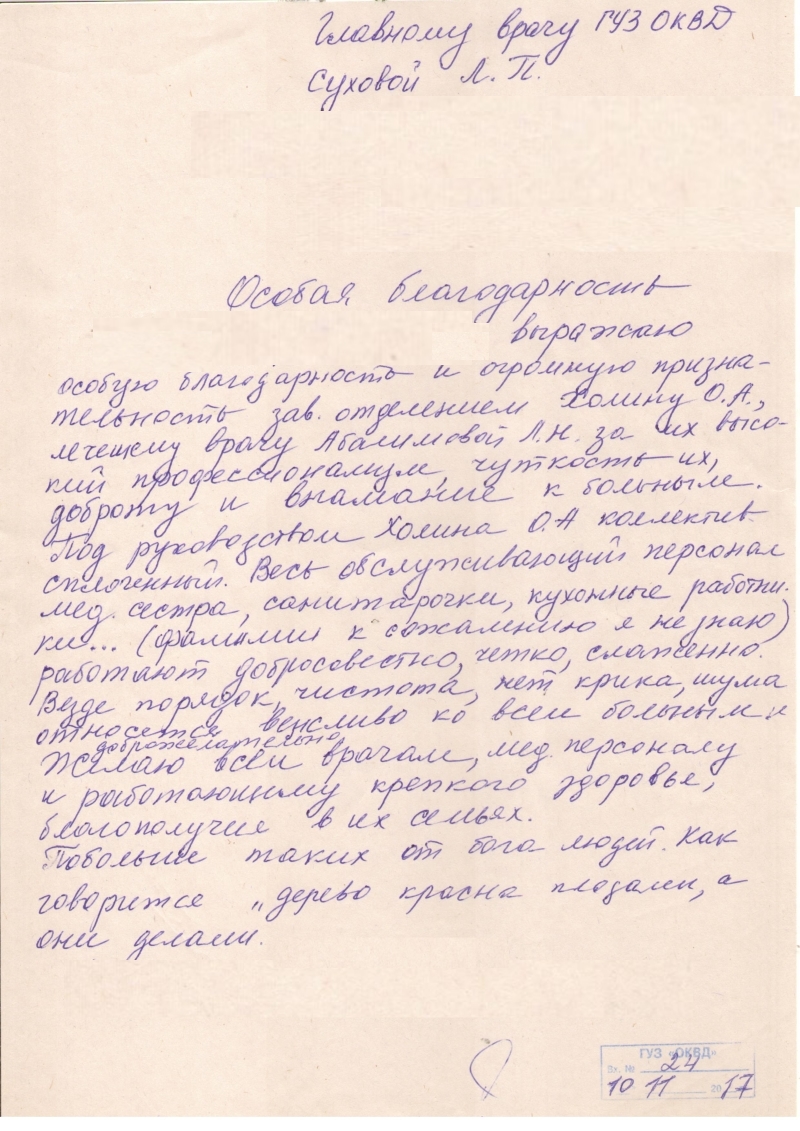 Главному врачу ГУЗ ОКВД
Суховой Л. П.
Особая благодарность
выражаю
особую благодарность и огромную призна-
тельность зав. отделением Холину О.А.,
лечещему врачу Абалимовой Л.Н. за их высо-
кий профессионализм, чуткость их,
доброту и внимание к больным.
Под руководством Холина О.А коллектив
сплоченный. Весь обслуживающий персонал
мед. сестра, санитарочки, кухонные работни-
ки... (фамилии к сожалению я не знаю)
работают добросовестно, четко, слаженно.
Везде порядок, чистота, нет крика, шума
относется вежливо ко всем больным и
доброжелательно
Желаю всем врачам, мед. персоналу
и работающему крепкого здоровье,
благополучия в их семьях.
Побольше таких от бога людей. Как
говоритсе „дерево красна плодами, а
они делами.
ГУЗ «ОКВД»
Вх. № 24
10 11 2017